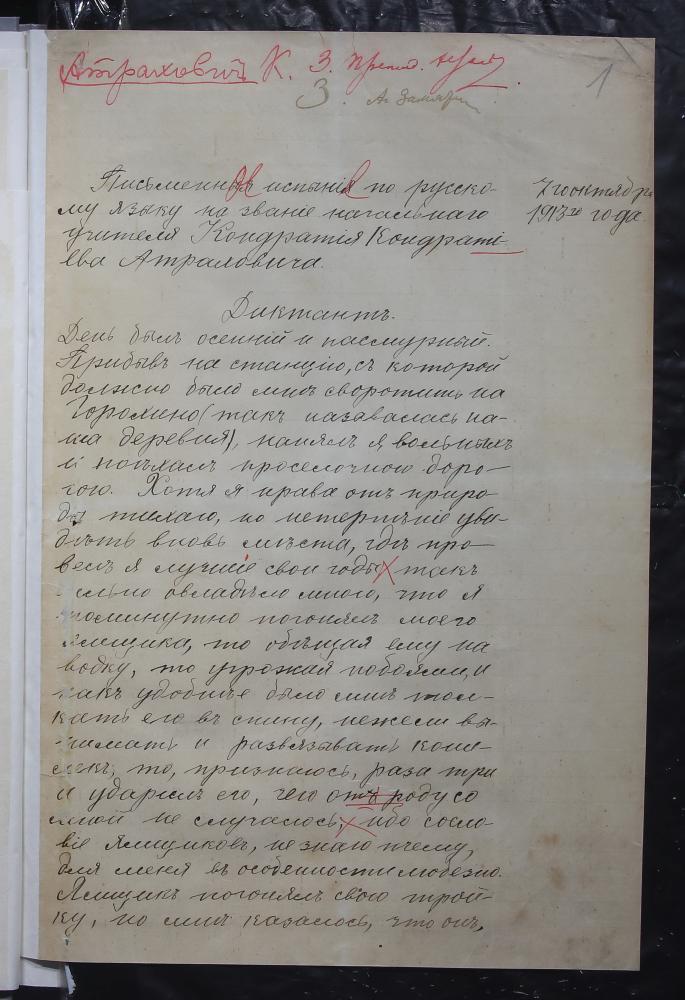 Атрахович К. 3.
1
3.
Письменныя испынія по русско-
му языку на званіе начальнаго
учителя Кондратія Кондраті-
ева Атраховича.
7го октября
1913го года.
Диктантъ.
День былъ осенній и пасмурный.
Прибывъ на станцію, съ которой
должно было мнѣ своротить на
Горохино (такъ назавалась на-
ша деревня), нанялъ я вольныхъ
и поѣхалъ проселочною доро-
гою. Хотя я нрава отъ приро-
ды тихаго, но нетерпѣніе уви-
дѣть вновь мѣста, гдѣ про-
велъ я лучшіе свои годы такъ
сильно овладѣло мною, что я
поминутно погонялъ моего
ямщика, то обѣщая ему на
водку, то угрожая побоями, и
какъ удобнѣе было мнѣ тол-
кать его въ спину, нежели вы-
нимать и развязывать коше-
лекъ, то, признаюсь, раза три
и ударилъ его, чего отъ роду со
мной не случалось, ибо сосло-
віе ямщиковъ, не знаю пчему,
для меня въ особенности любезно.
Ямщикъ погонялъ свою трой-
ку, но мнѣ казалось, что онъ,